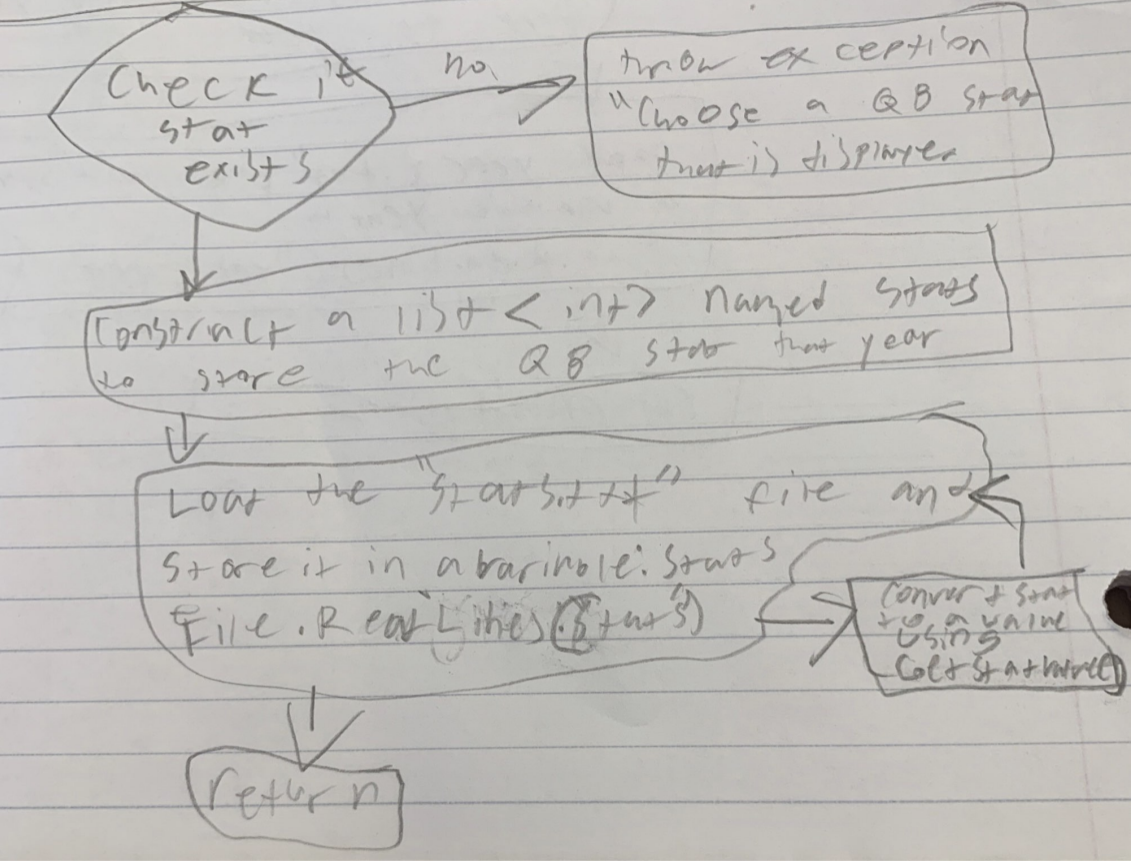 Check if
stat
exists
no
throw exception
"Choose a QB stat
that is displayed
Construct a list <int> named stats
to store the QB stats that year
Load the "stats.txt" file and
store it in a variable: stats
File.ReadLines("stats")
convert stat
to a value
using